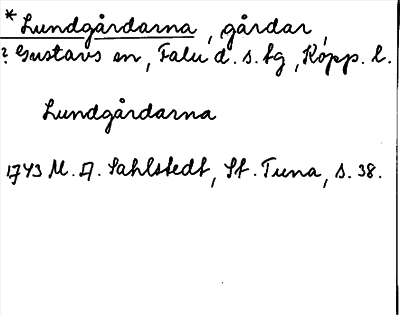 * Lundgårdarna, gårdar,
? Gustavs en, Falu d. s. tg, Kopp. l.
Lundgårdarna
1743 M. A. Sahlstedt, St. Tuna, s. 38.